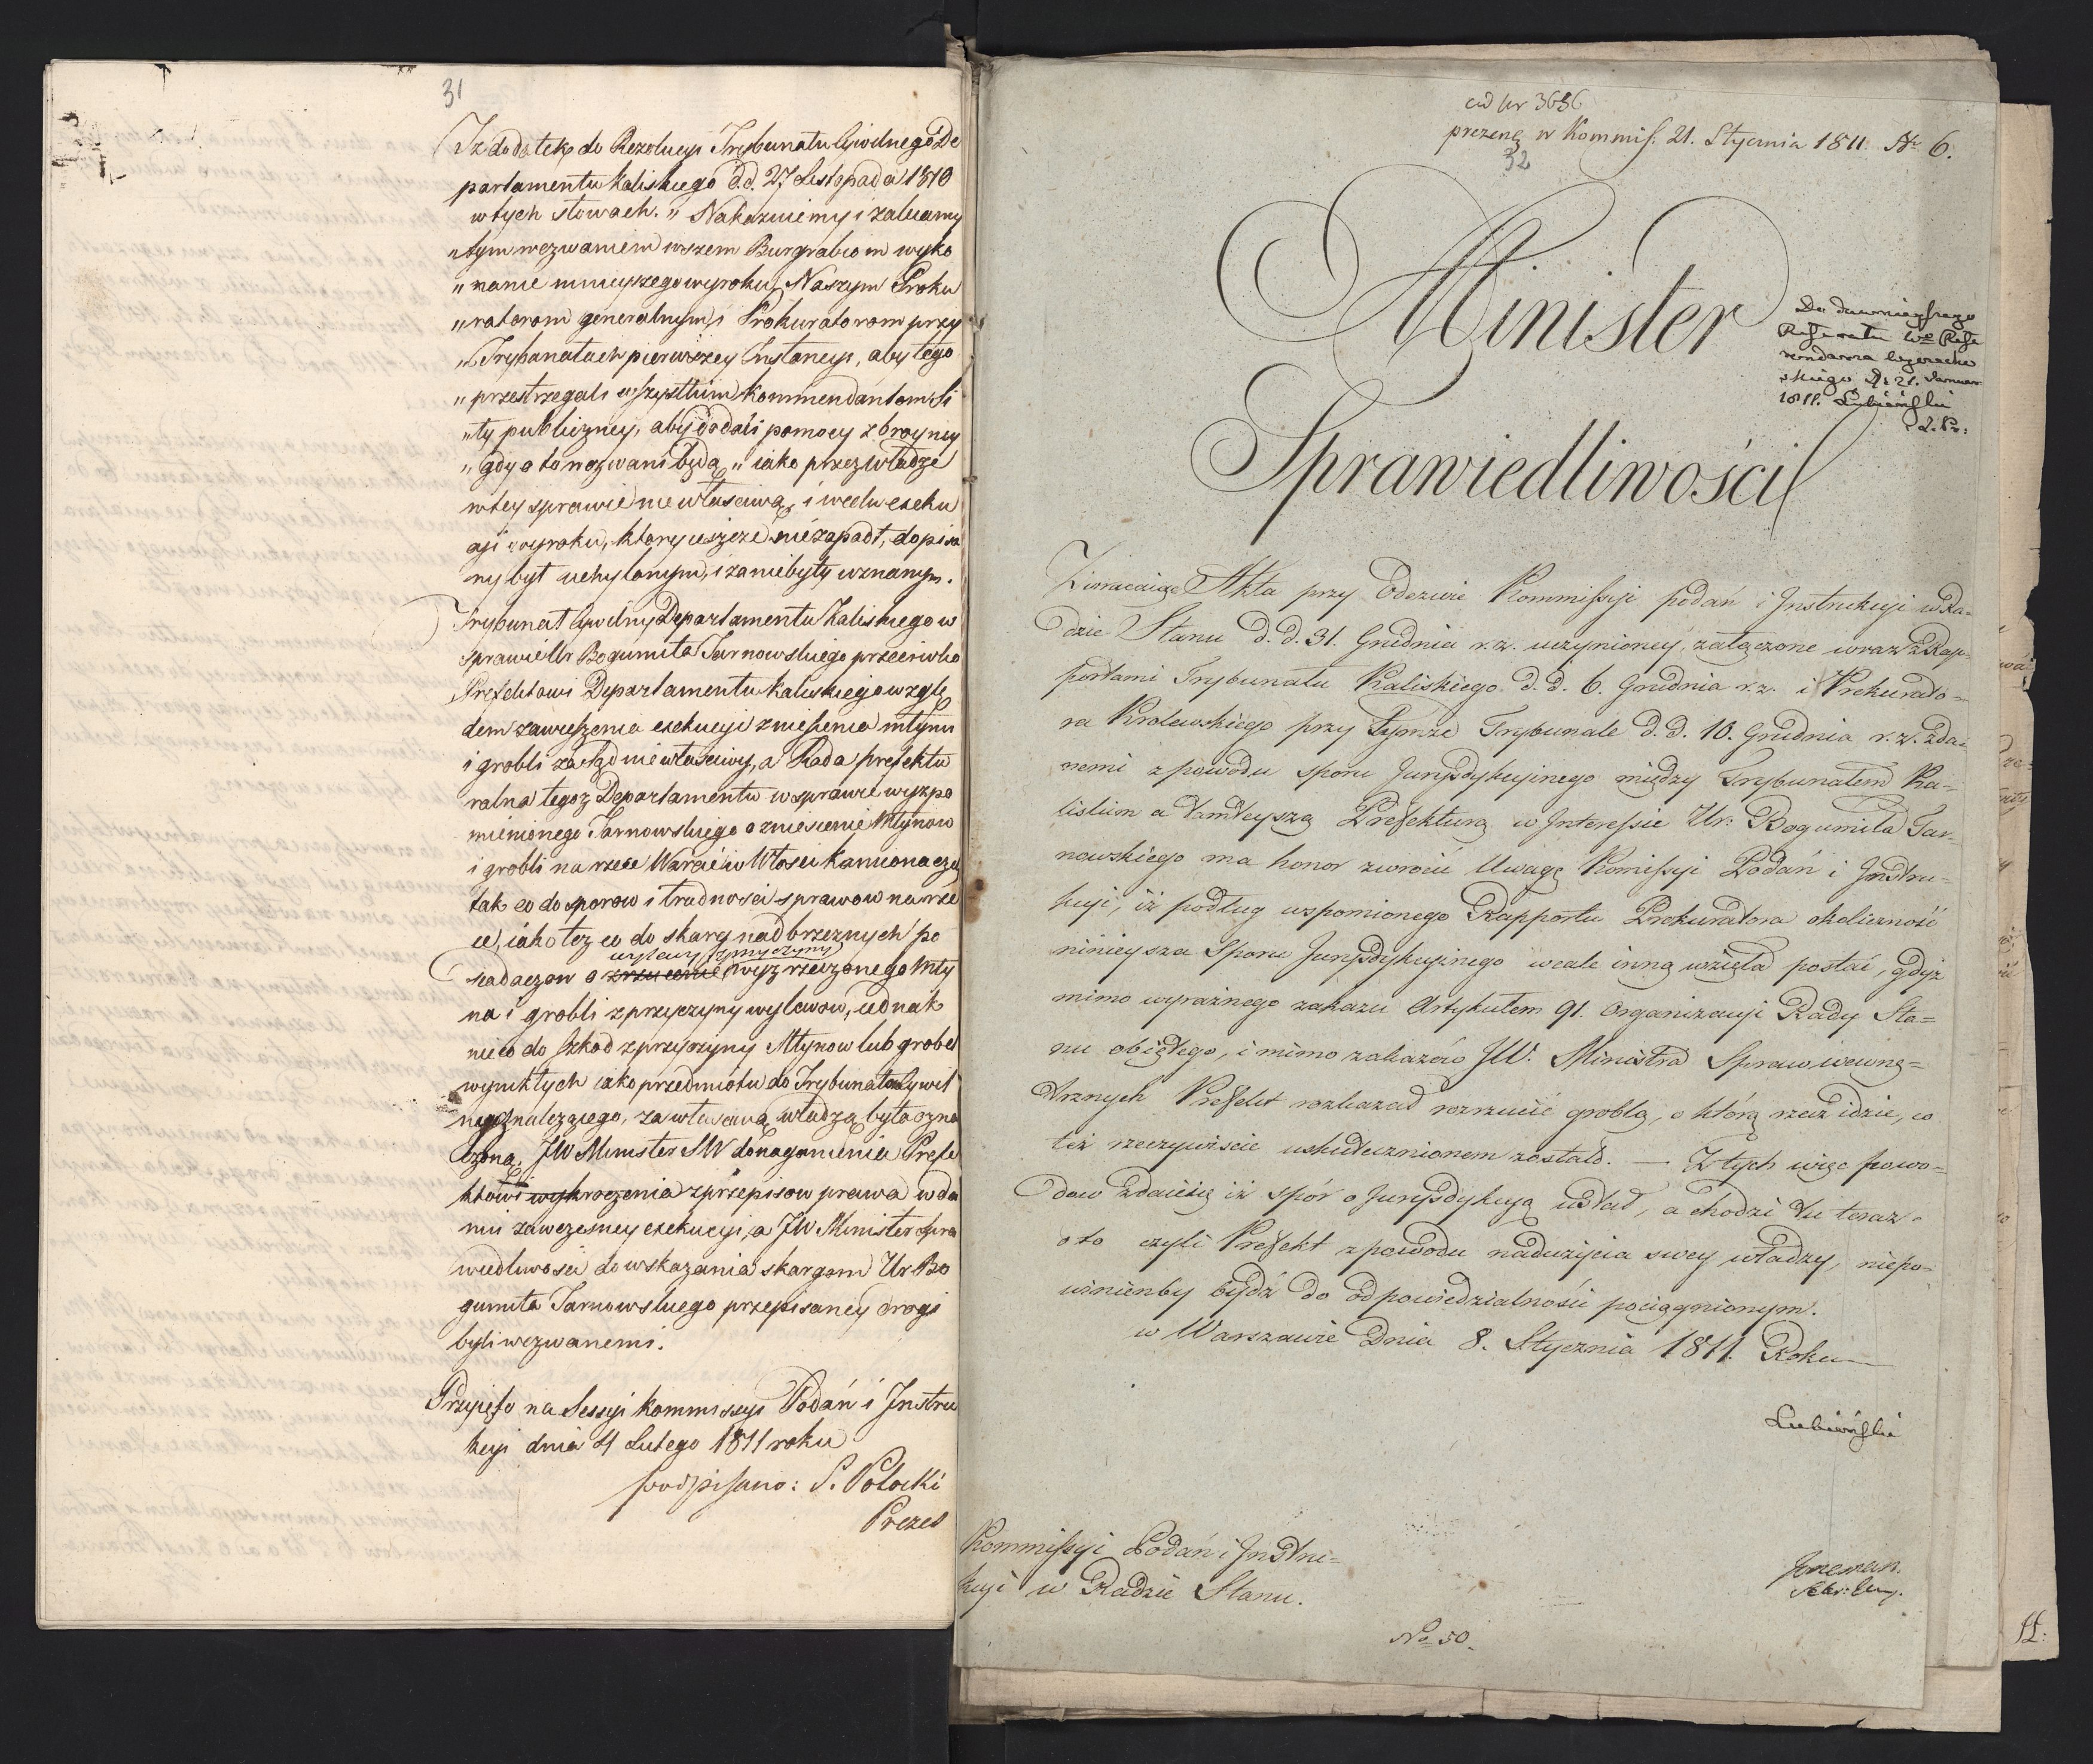 31
Iż dodatek do Rezolucyi Trybunatu Cywilnego De
partamentu Kaliskiego d.d. 27 Listopada 1810
w tych słowach. „ Nakazuiemy i zalecamy
„ tym wezwaniem wszem Burgrabiom wyko
„ nanie ninieyszego wyroku, Naszym Proku
„ ratorom generalnym, i Prokuratorom przy
„ Trybunałach pierwszey Instancyi, aby tego
„ przestrzegali wszystkim Kommendantom Si
„ ły publiczney, aby dodali pomocy zbroyney
„ gdy o to wezwani będą „ iako przez Władze
w tey sprawie nie właściwą, i w celu exeku
cyi wyroku, który ieszcze nie zapadł, dopisa
ny był uchylonym, i za niebyły uznanym.
Trybunał Cywilny Departamentu Kaliskiego w
sprawie Ur Bogumiła Tarnowskiego przeciwko
Prefektowi Departamentu Kaliskiego wzglę
dem zawieszenia exekucyi zniesienia młynu
i grobli za Sąd nie właściwy, a Rada prefektu
ralna tegoż Departamentu w sprawie wyżpo
mienionego Tarnowskiego o zniesienie Młynow
i grobli na rzece Warcie w Włości Kamionaczu
tak co do sporow i trudności sprawow na rze
ce, iako też co do skarg nadbrzeżnych po
wylewy
siadaczow o zrzucenie wyż rzeczonego Mły
na i grobli z przyczyny wylewow, iednak
nie co do szkod z przyczyny Młynow lub grobel
wynikłych iako przedmiotu do Trybunału Cywil
nego należącego, za właściwą władzą była ozna
czona, JW Minister SW do nagonienia Prefe
ktowi wykroczenia z przepisow prawa w da
niu zawczesney exekucyi, a JW Minister Spra
wiedliwości do wskazania skargom Ur Bo
gumiła Tarnowskiego przepisaney drogi
byli wezwanemi.
Przyięto na Sessyi Kommissyi Podań i Instru
kcyi dnia 4 Lutego 1811 roku
podpisano: S. Potocki
Prezes
ad Nr 3656
prezent w Kommiss. 21. Stycznia 1811 Nr 6.
32
Minister
Sprawiedliwości
Do dawnieyszego
Referatu Wo Refe
rendarza
skiego D: 21. Januar
1811. Łubieński
Zwracaiąc Akta przy Odezwie Kommissyi podań i Instrukcyi w Ra-
dzie Stanu d. d. 31. Grudnia r. z. uczynioney, załączone wraz z Rap-
portami Trybunału Kaliskiego d. d. 6. Grudnia r. z. i Prokurato-
ra Królewskiego przy Tymże Trybunale d. d. 10. Grudnia r. z. zda-
nemi z powodu sporu Juryzdykcyinego między Trybunałem Ka-
liskim a tamteyszą Prefekturą w Interessie Ur: Bogumiła Tar-
nowskiego ma honor zwrócić Uwagę Komissyi Podań i Instru-
kcyi, iż podług wspomionego Rapportu Prokuratora okoliczność
ninieysza Sporu Juryzdykcyinego wcale inną wzięła postać, gdyż
mimo wyraźnego zakazu Artykułem 91. Organizacyi Rady Sta=
nu obiętego, i mimo zakazów JW. Ministra Spraw wewnę=
trznych Prefekt rozkazał rozrzucić groblą, o którą rzecz idzie, co
też rzeczywiście uskutecznionem zostało. — Z tych więc powo-
dow zdaie się iż spór o Juryzdykcyą ustał, a chodzi tu teraz
o to czyli Prefekt z powodu nadużycia swey władzy, niepo-
winienby bydź do odpowiedzialności pociągnionym.
w Warszawie Dnia 8. Stycznia 1811. Roku
Łubieński
Kommissyi Podań i Instru=
kcyi w Radzie Stanu.
No 50.